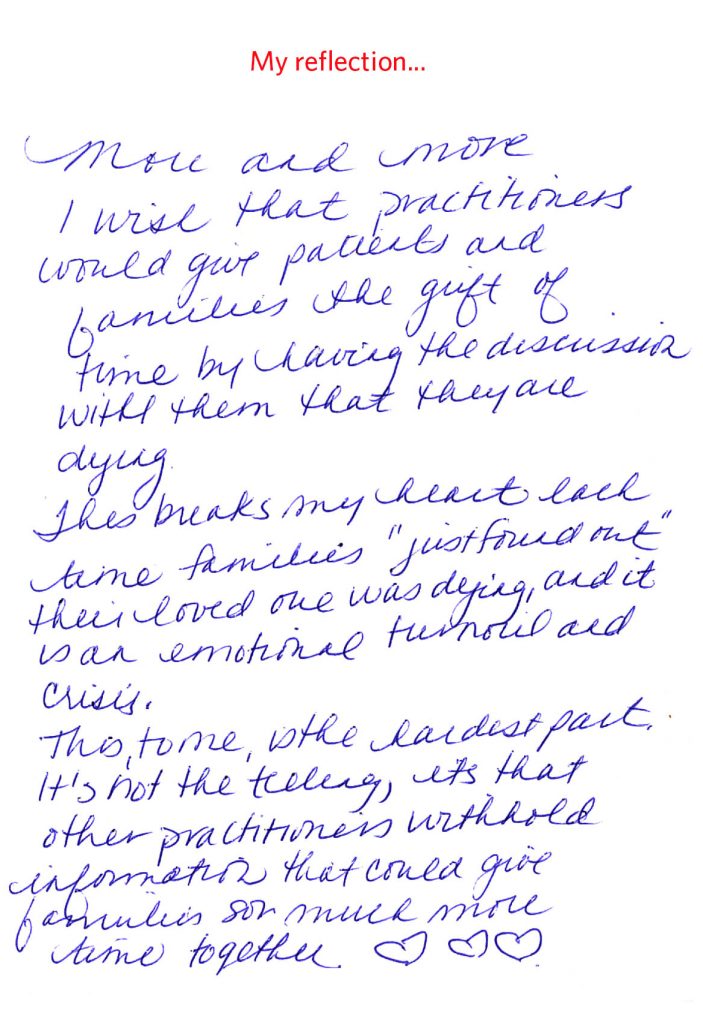 My reflection...
More and more
I wish that practitioners
would give patients and
families the gift of
time by having the discussion
with them that they are
dying.
This breaks my heart each
time families "just found out"
their loved one was dying, and it
is an emotional turmoil and
crisis.
This, to me, is the hardest part.
It's not the telling, its that
other practitioners withhold
information that could give
families so much more
time together. ♡ ♡♡